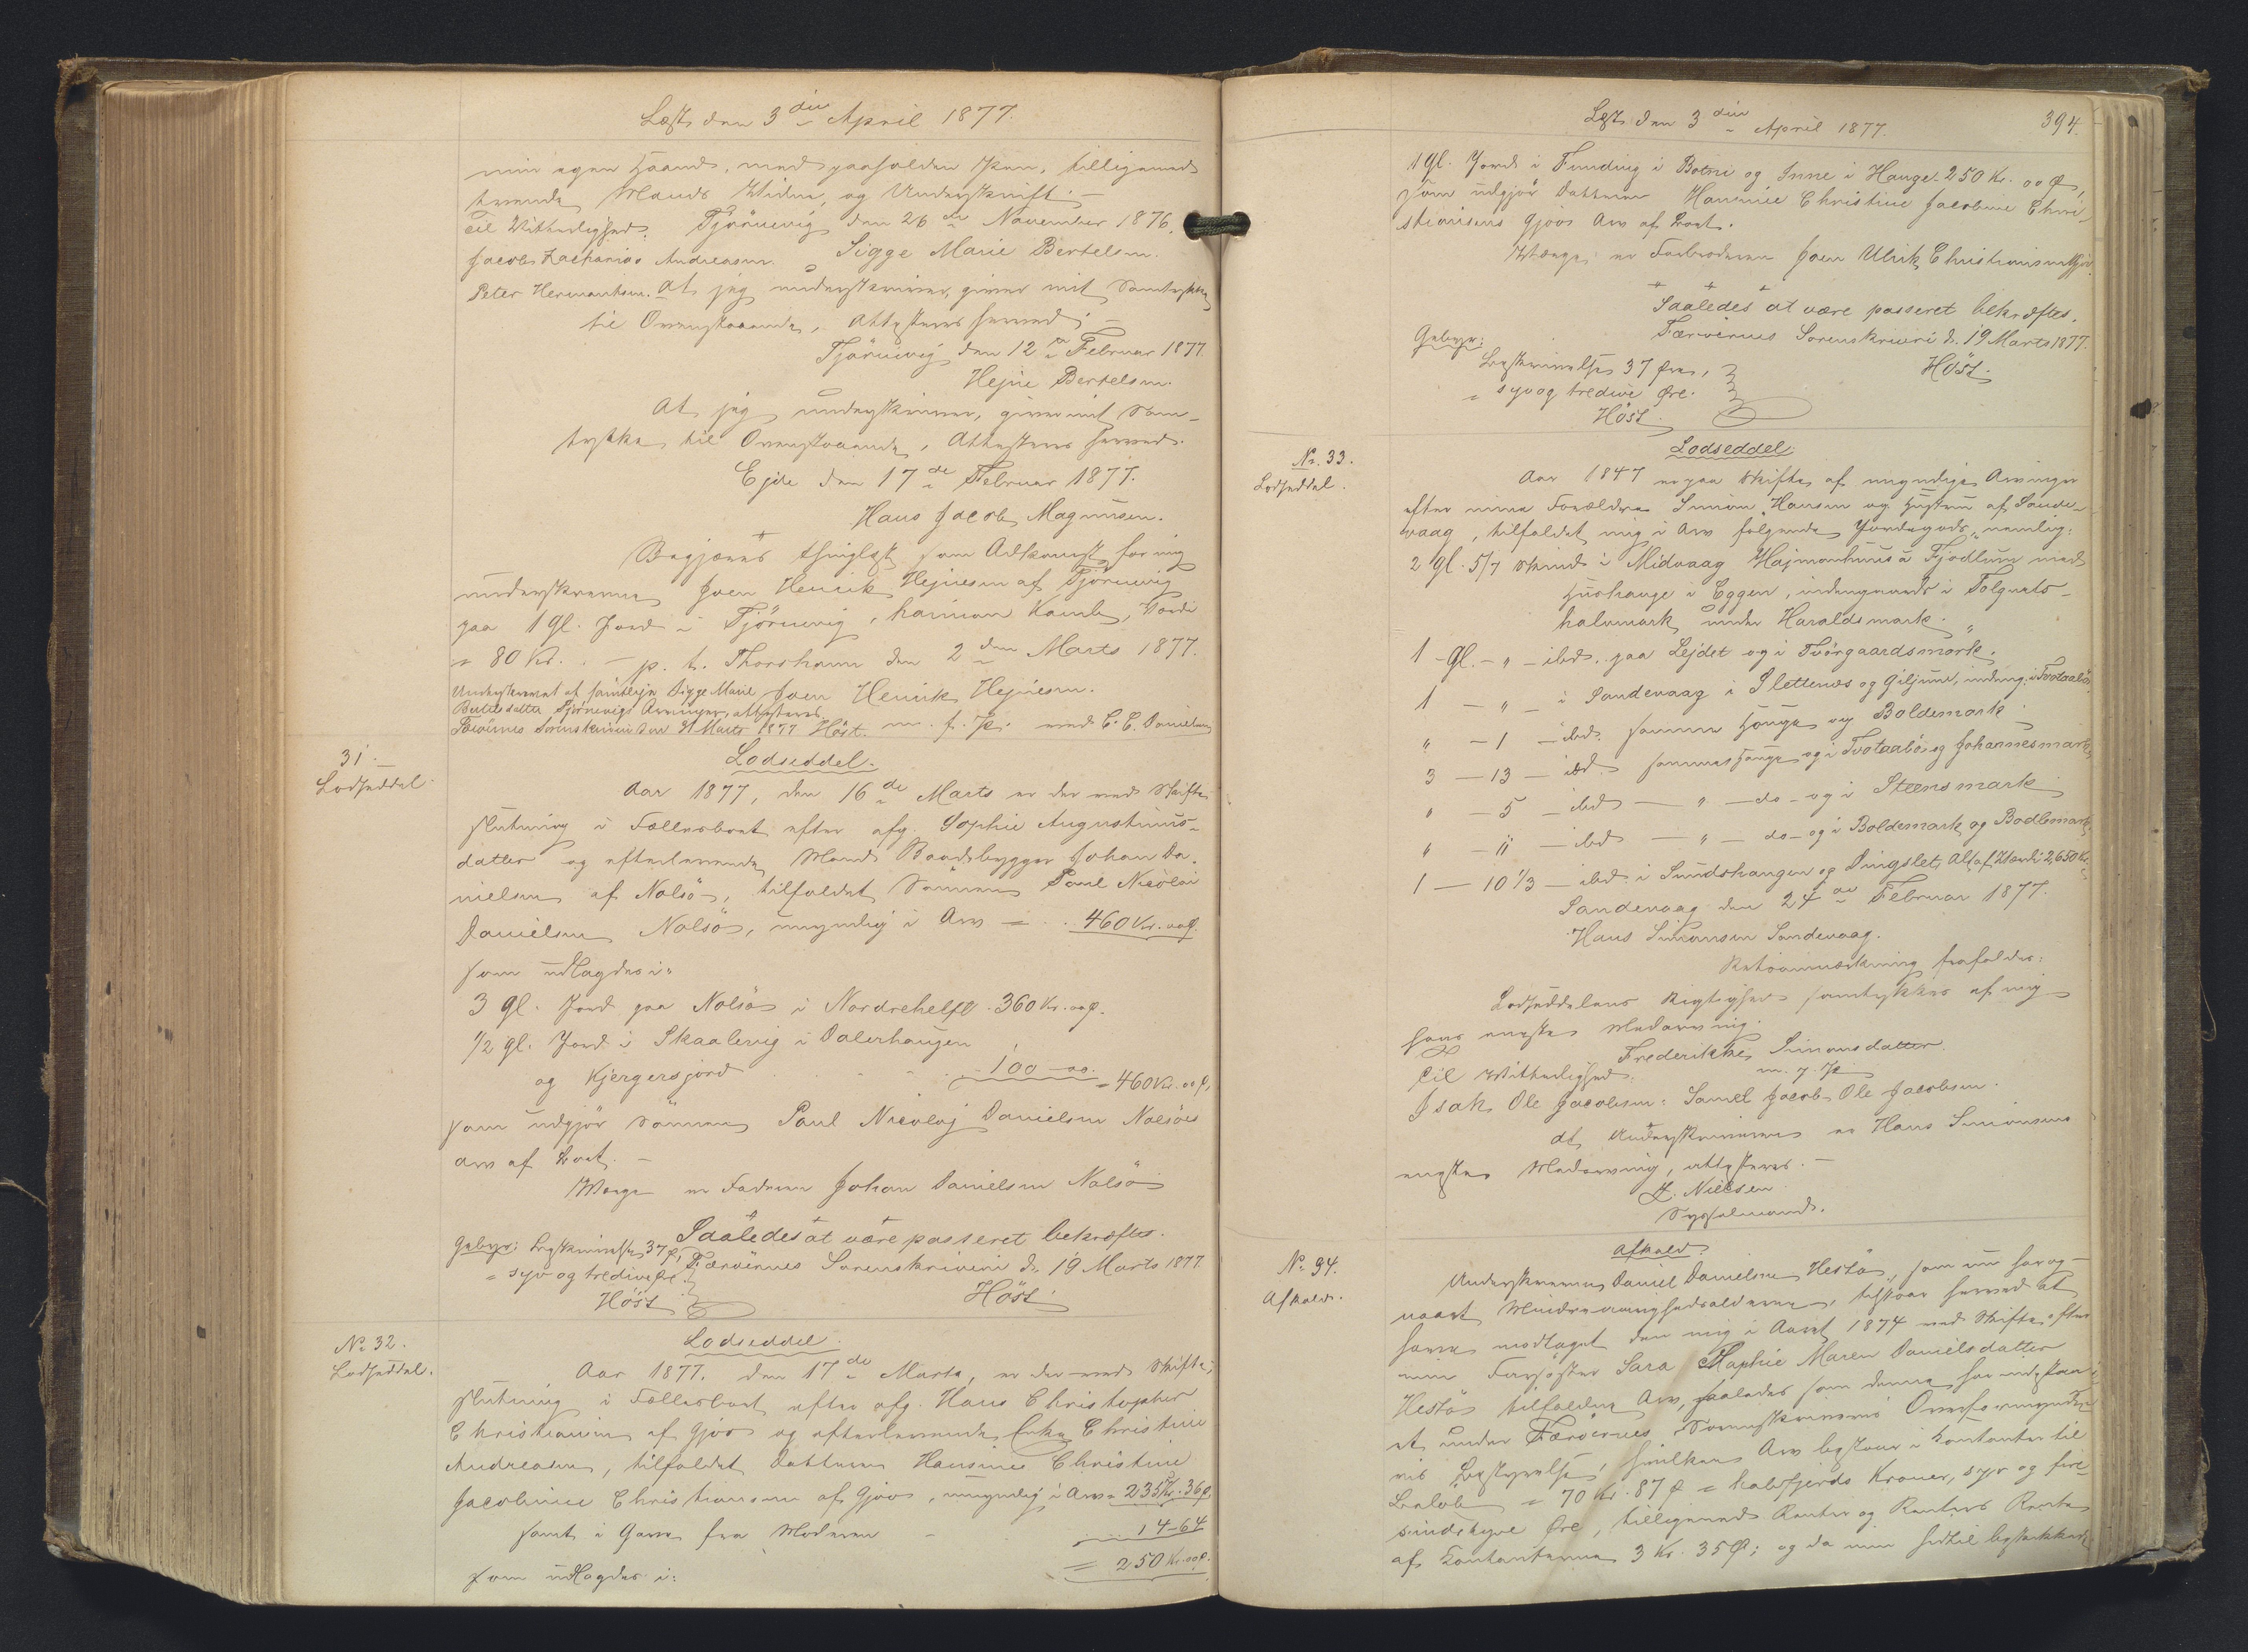 Læst den 3die April 1877.
min egen Haand, med paaholden Pen, tilligemed
tvende Mænds Vidne og Underskrift.
Til Vitterlighed. Tjörnevig den 26de November 1876.
Jacob Zacharias Andreasen. Sigge Marie Bertelsen.
Peter Hermansen. At jeg underskriver, giver mit Samtykke
til Ovenstaaende, attesteres herved.
Tjörnevig den 12te Februar 1877.
Hejne Bertelsen.
At jeg underskriver, giver mit Sam-
tykke til Ovenstaaende, attesteres herved.
Ejde den 17de Februar 1877.
Hans Jacob Magnusen.
Begjæres thinglæst som Adkomst for mig
underskrevne Joen Henrik Hejnesen af Tjörnevig
paa 1 gl. Jord i Tjörnevig, Værdi
= 80 Kr. - p. t. Thorshavn den 2den Marts 1877.
Joen Henrik Hejnesen.
m. f. P. ved C. C. Danielsen
Underskrevet af samtlige Sigge Marie
Bertelsdatter Tjörnevigs Arvinger, attesteres.
Færöernes Sorenskriveri den 21 Marts 1877 Höst.
31.
Lodseddel
Lodseddel.
Aar 1877, den 16de Marts er der ved Skifte-
slutning i Fællesboet efter afg. Sophie Augustinus-
datter og efterlevende Mand Baadebygger Johan Da-
nielsen af Nolsö, tilfaldet Sönnen Poul Nicolai
Danielsen Nolsö, umyndig i Arv = 460 Kr. 00 Ø.
som udlagdes i:
3 gl. Jord paa Nolsö i Nordrehelft. 360 Kr. 00 Ø.
1/2 gl. Jord i Skaalevig i Dalerhaugen
og Kjergersjord 100 - 00. = 460 Kr. 00 Ø,
som udgjör Sönnen Poul Nicolaj Danielsen Nolsöes
Arv af Boet. -
Værge er Faderen Johan Danielsen Nolsö
Saaledes at være passeret bekræftes.
Gebyr: Beskrivelse 37 Ø, Færöernes Sorenskriveri d. 19 Marts 1877
= syv og tredive Øre
Höst Höst.
No 32.
Lodseddel.
Lodseddel.
Aar 1877, den 17de Marts, er der ved Skifte-
slutning i Fællesboet efter afg. Hans Christopher
Christiansen af Gjov og efterlevende Enke Christine
Andreasen, tilfaldet Datteren Hansine Christine
Jacobine Christiansen af Gjov, umyndig i Arv = 235 Kr. 36 Ø,
samt i Gave fra Moderen - 14 - 64
= 250 Kr. 00 Ø.
som udlagdes i:
Læst den 3die April 1877. 394.
1 gl. Jord i Funding i Botni og Inne i Hauge. 250 Kr. 00 Ø,
som udgjör Datteren Hansine Christine Jacobine Chri-
stiansens Gjov Arv af Boet.
Værge er Farbroderen Joen Ulrik Christiansen Gjov
Saaledes at være passeret bekræftes.
Færöernes Sorenskriveri d. 19 Marts 1877.
Gebyr:
Beskrivelse 37 Øre, Höst.
= syv og tredive Øre.
Höst
No. 33.
Lodseddel.
Lodseddel
Aar 1847 er paa Skifte af myndige Arvinger
efter mine Forældre Simon Hansen og Hustru af Sande-
vaag, tilfaldet mig i Arv følgende Jordegods, nemlig:
2 gl. 5/7 Skind i Midvaag Hajmanhuus a Fjodlum med
Huushauge i Eggen, indengaards i Tolgaats-
halvmark under Haraldsmark.
1 - gl. - " - ibd. paa Lejdet og i Tvörgaardsmörk.
1 - " - i Sandevaag i Slettenæs og Giljum, indeng. i Tvotaabö.
" - 1 - ibd. samme Hauge og Boldemark
3 - 13 - ibd. sammes Hauge og i Tvotaabö og Johannesmark
" - 5 - ibd - " - do - og i Steensmark
" - 11 - ibd - " - do - og i Boldemark og Bodlemark.
1 - 10 1/3 - ibd. i Sundshaugen og Dingslet, Alt af Værdi 2,650 Kr.
Sandevaag den 24de Februar 1877.
Hans Simonsen Sandevaag.
Lodseddelens Rigtighed samtykkes af mig
hans eneste Medarving.
Frederikke Simonsdatter.
m. f. P.
Til Vitterlighed:
Isak Ole Jacobsen. Samel Jacob Ole Jacobsen.
At Underskriveren er Hans Simonsens
eneste Medarving, attesteres. -
H. Nielsen
Sysselmand.
No 34.
Afkald.
Afkald.
Underskrevne Daniel Danielsen Hestö, som nu har op-
naaet Mindreaarighedsalderen, tilstaar herved at
have modtaget den mig i Aaret 1874 ved Skifte efter
min Farsöster Sara Maphie Maren Danielsdatter
Hestö tilfaldne Arv, saaledes som denne har indestaa-
et under Færöernes Sorenskriveris Overformynde-
ris Bestyrelse, hvilken Arv bestaar i Kontanter til
Beløb = 70 Kr. 87 Ø = halvfjerds Kroner, syv og fire-
sindstyve Øre, tilligemed Renter og Renters Rente
af Kontanterne 3 Kr. 35 Ø; og da min hidtil beskikkede